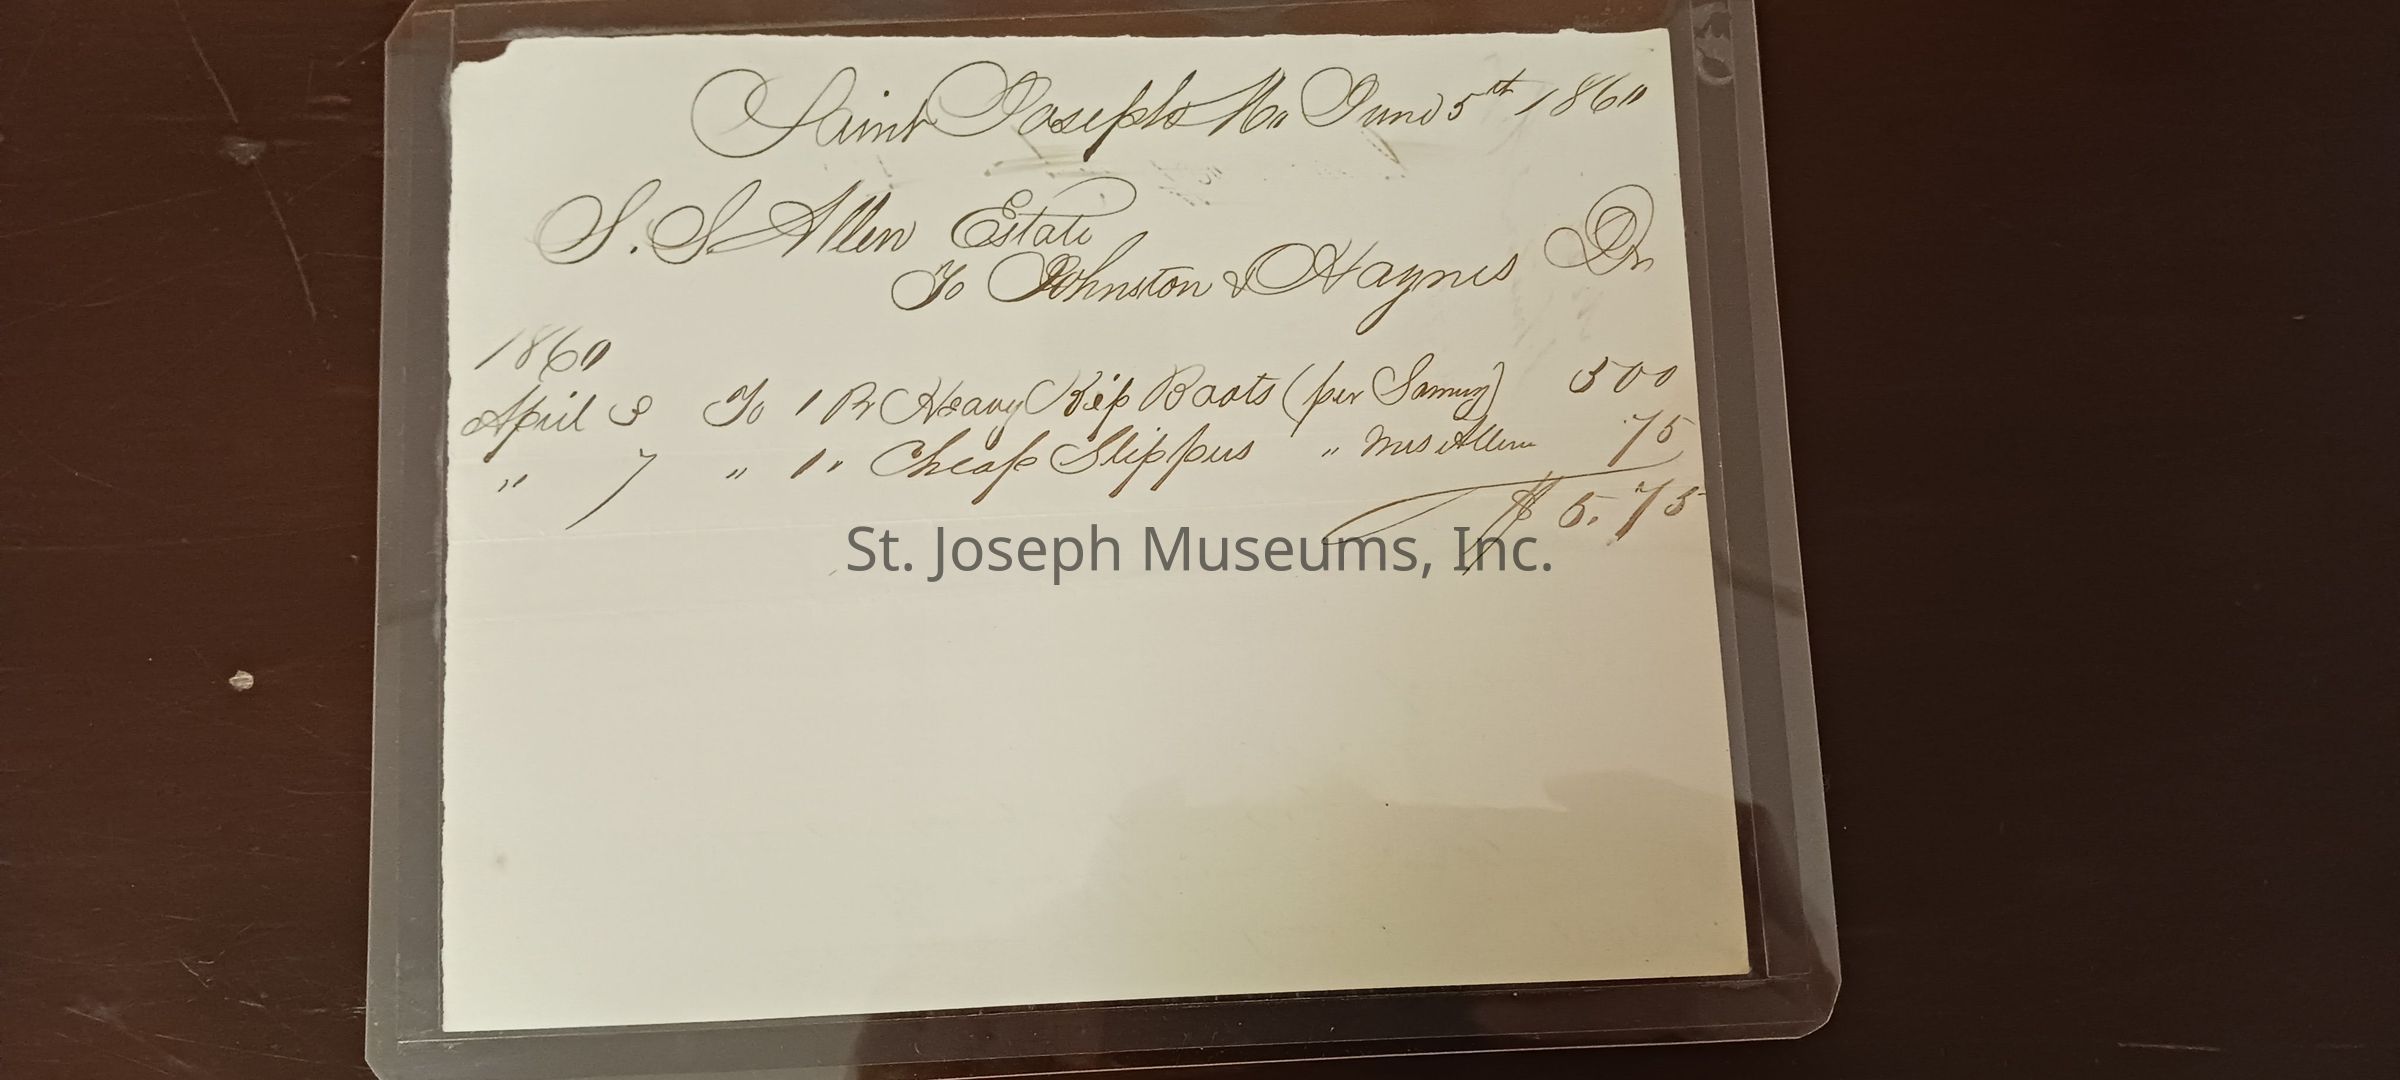 Saint Joseph Mo June 5th 1860
S. S. Allen Estate
To Johnston & Haynes Dr
1860
April 3 To 1 Pr Heavy Kip Boots (per Sammy) 5 00
" 7 " 1 " Cheap Slippers " Mrs Allen 75
$ 5.75
St. Joseph Museums, Inc.